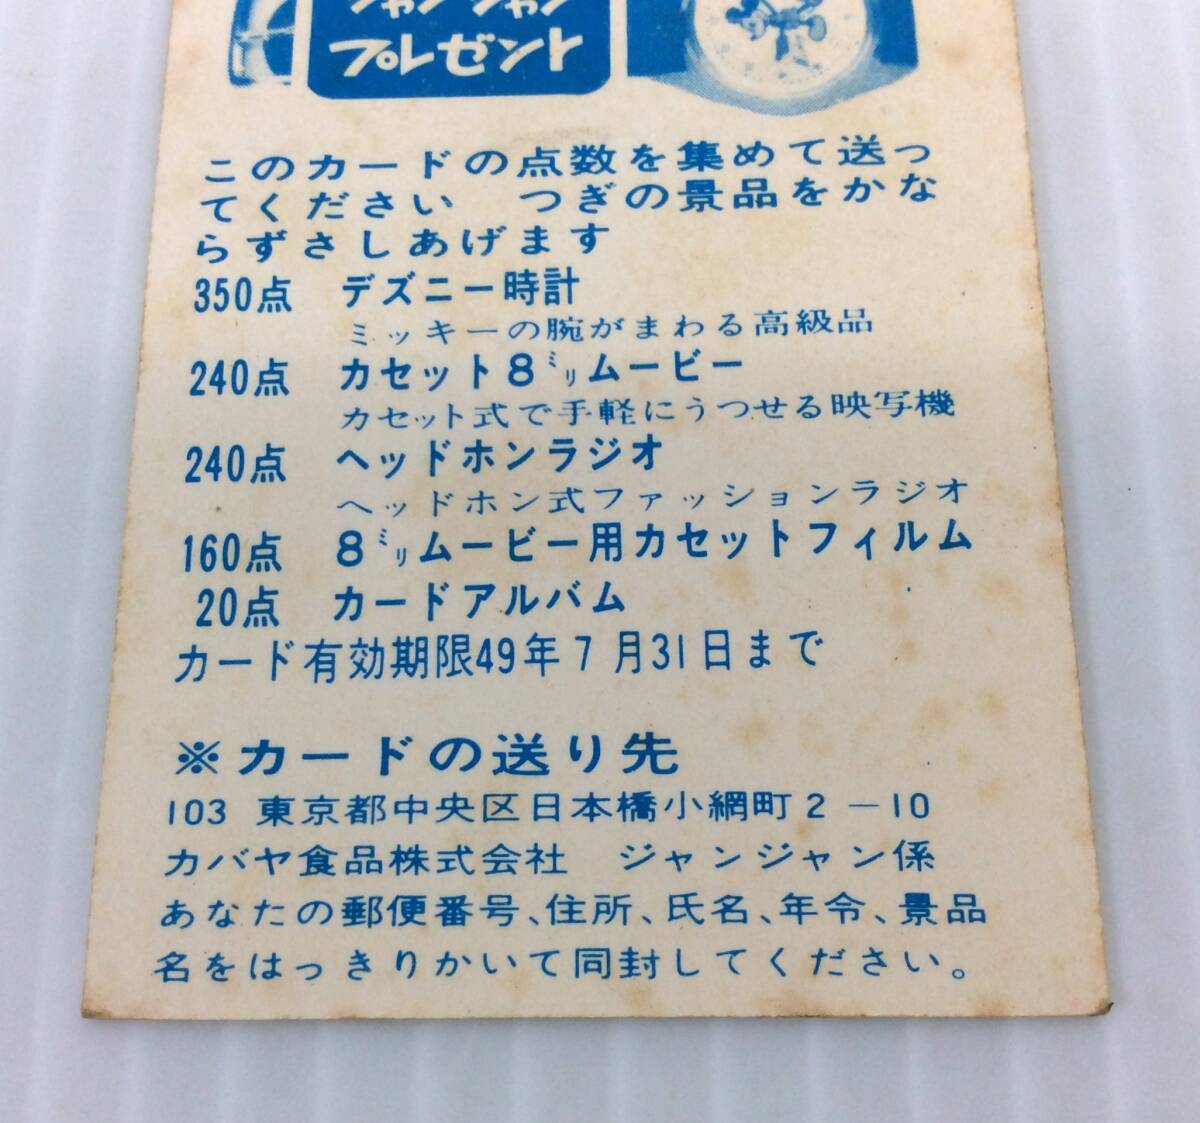 ジャンジャン
プレゼント
このカードの点数を集めて送っ
てください　つぎの景品をかな
らずさしあげます
350点　デズニー時計
ミッキーの腕がまわる高級品
240点　カセット8ミリムービー
カセット式で手軽にうつせる映写機
240点　ヘッドホンラジオ
ヘッドホン式ファッションラジオ
160点　8ミリムービー用カセットフィルム
20点　カードアルバム
カード有効期限49年7月31日まで
※カードの送り先
103 東京都中央区日本橋小網町2－10
カバヤ食品株式会社　ジャンジャン係
あなたの郵便番号、住所、氏名、年令、景品
名をはっきりかいて同封してください。